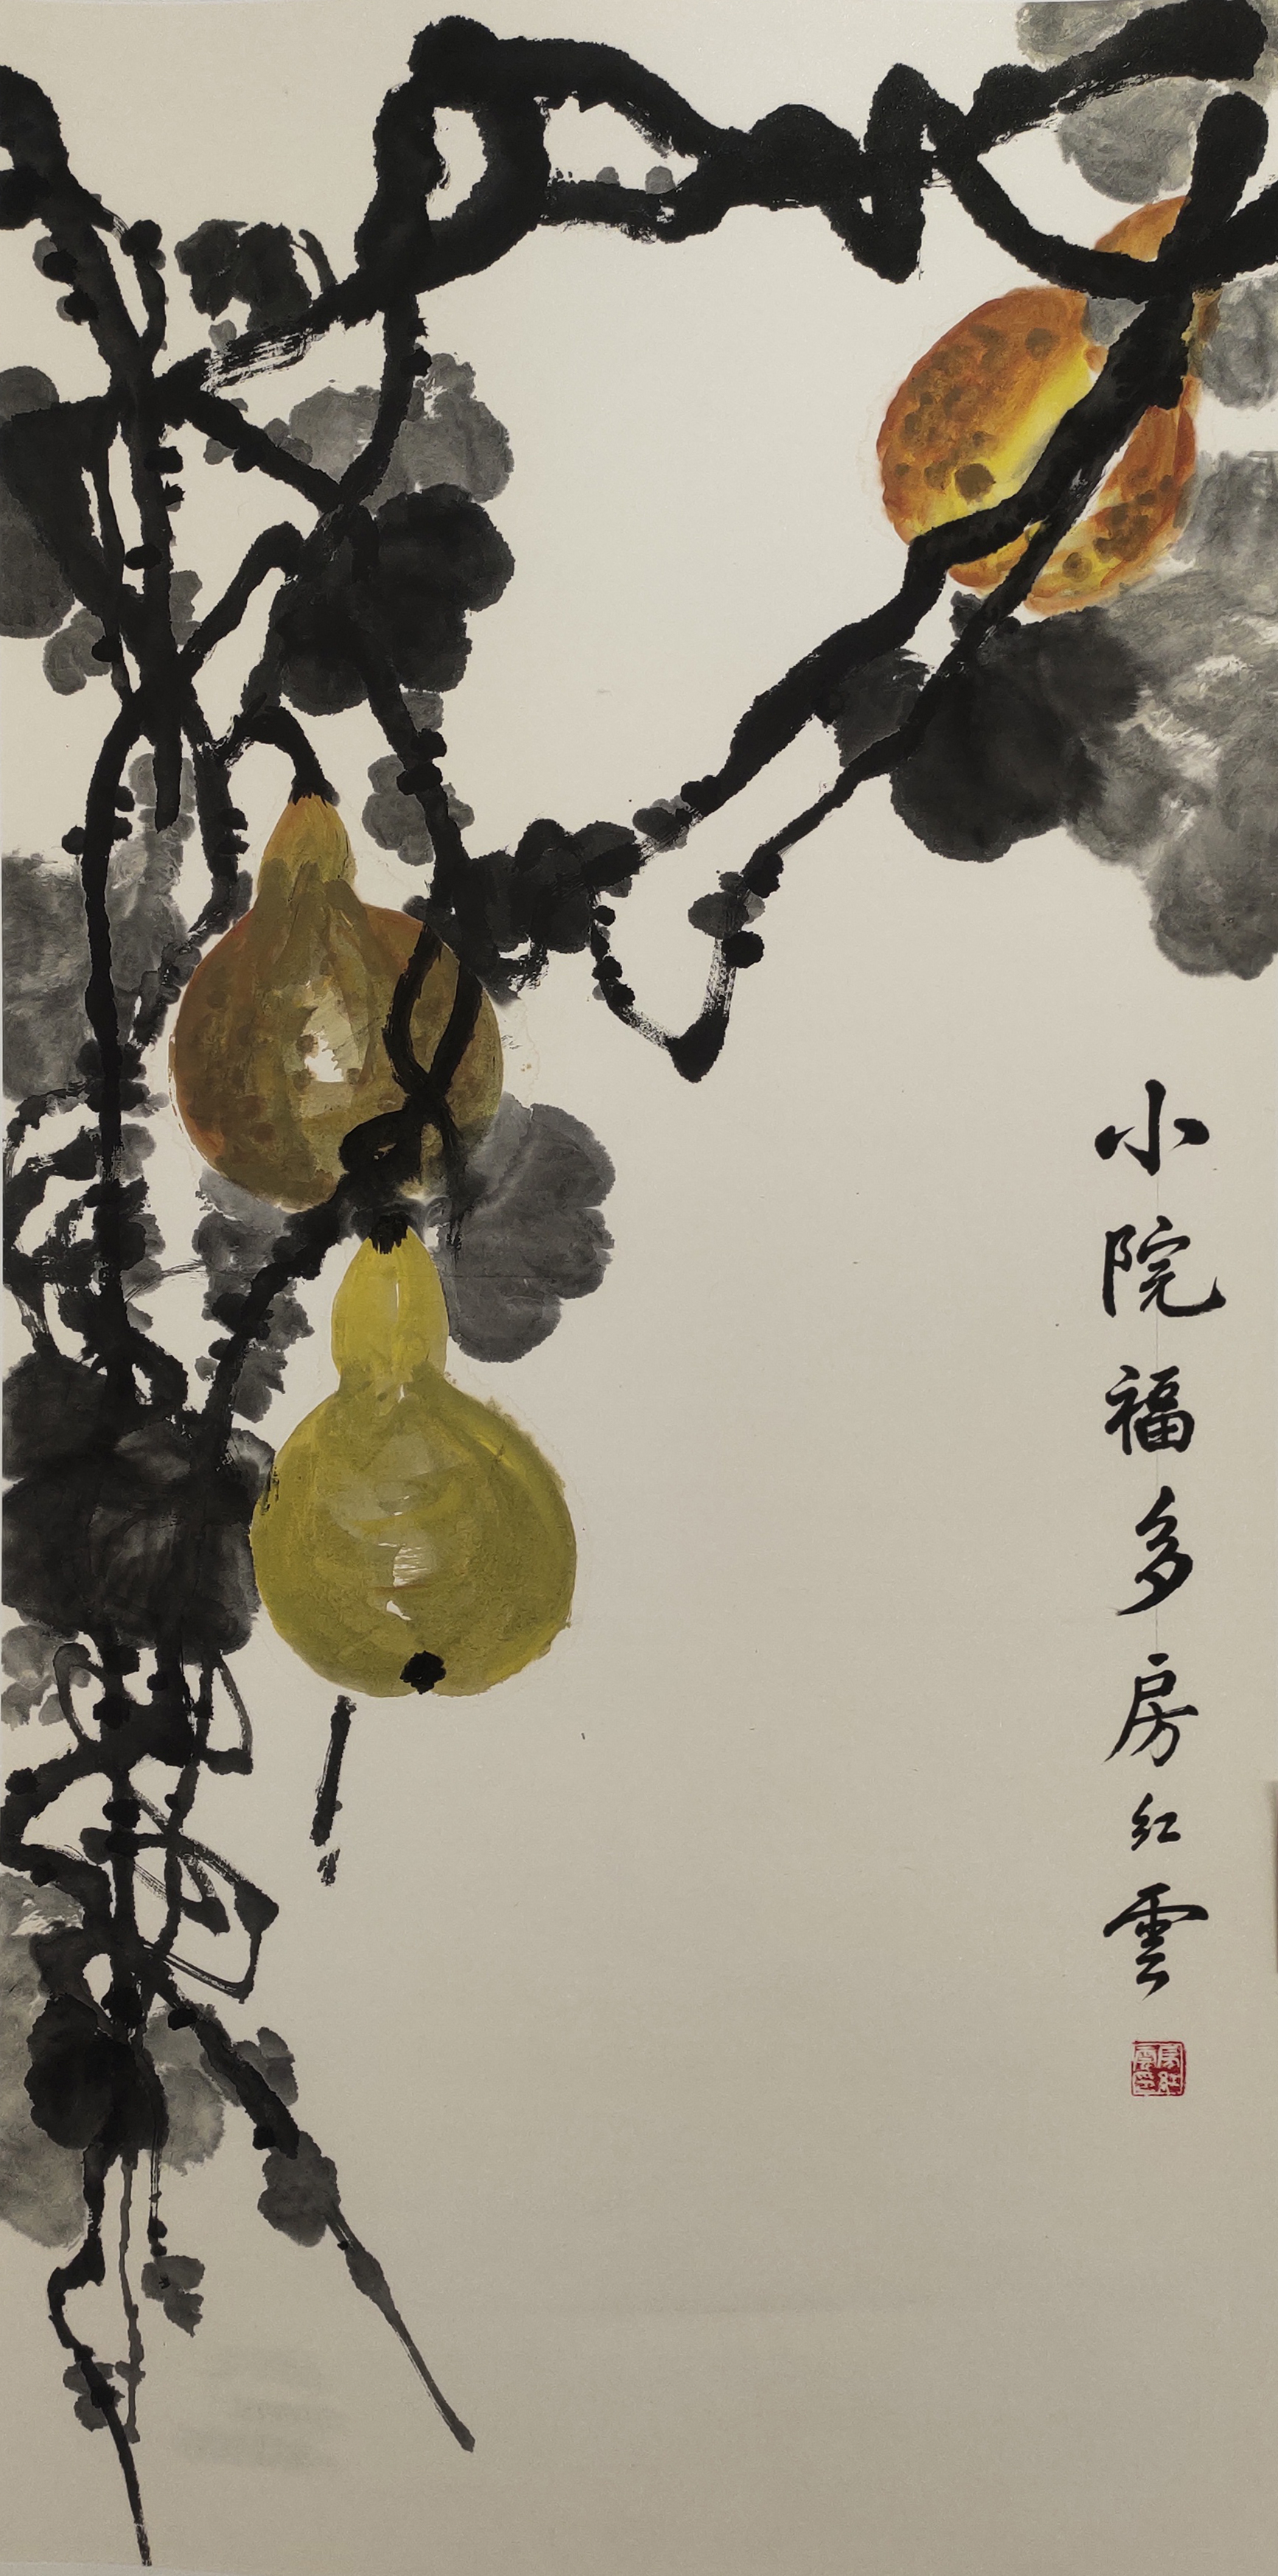 小院福多房红雲
房红雲印